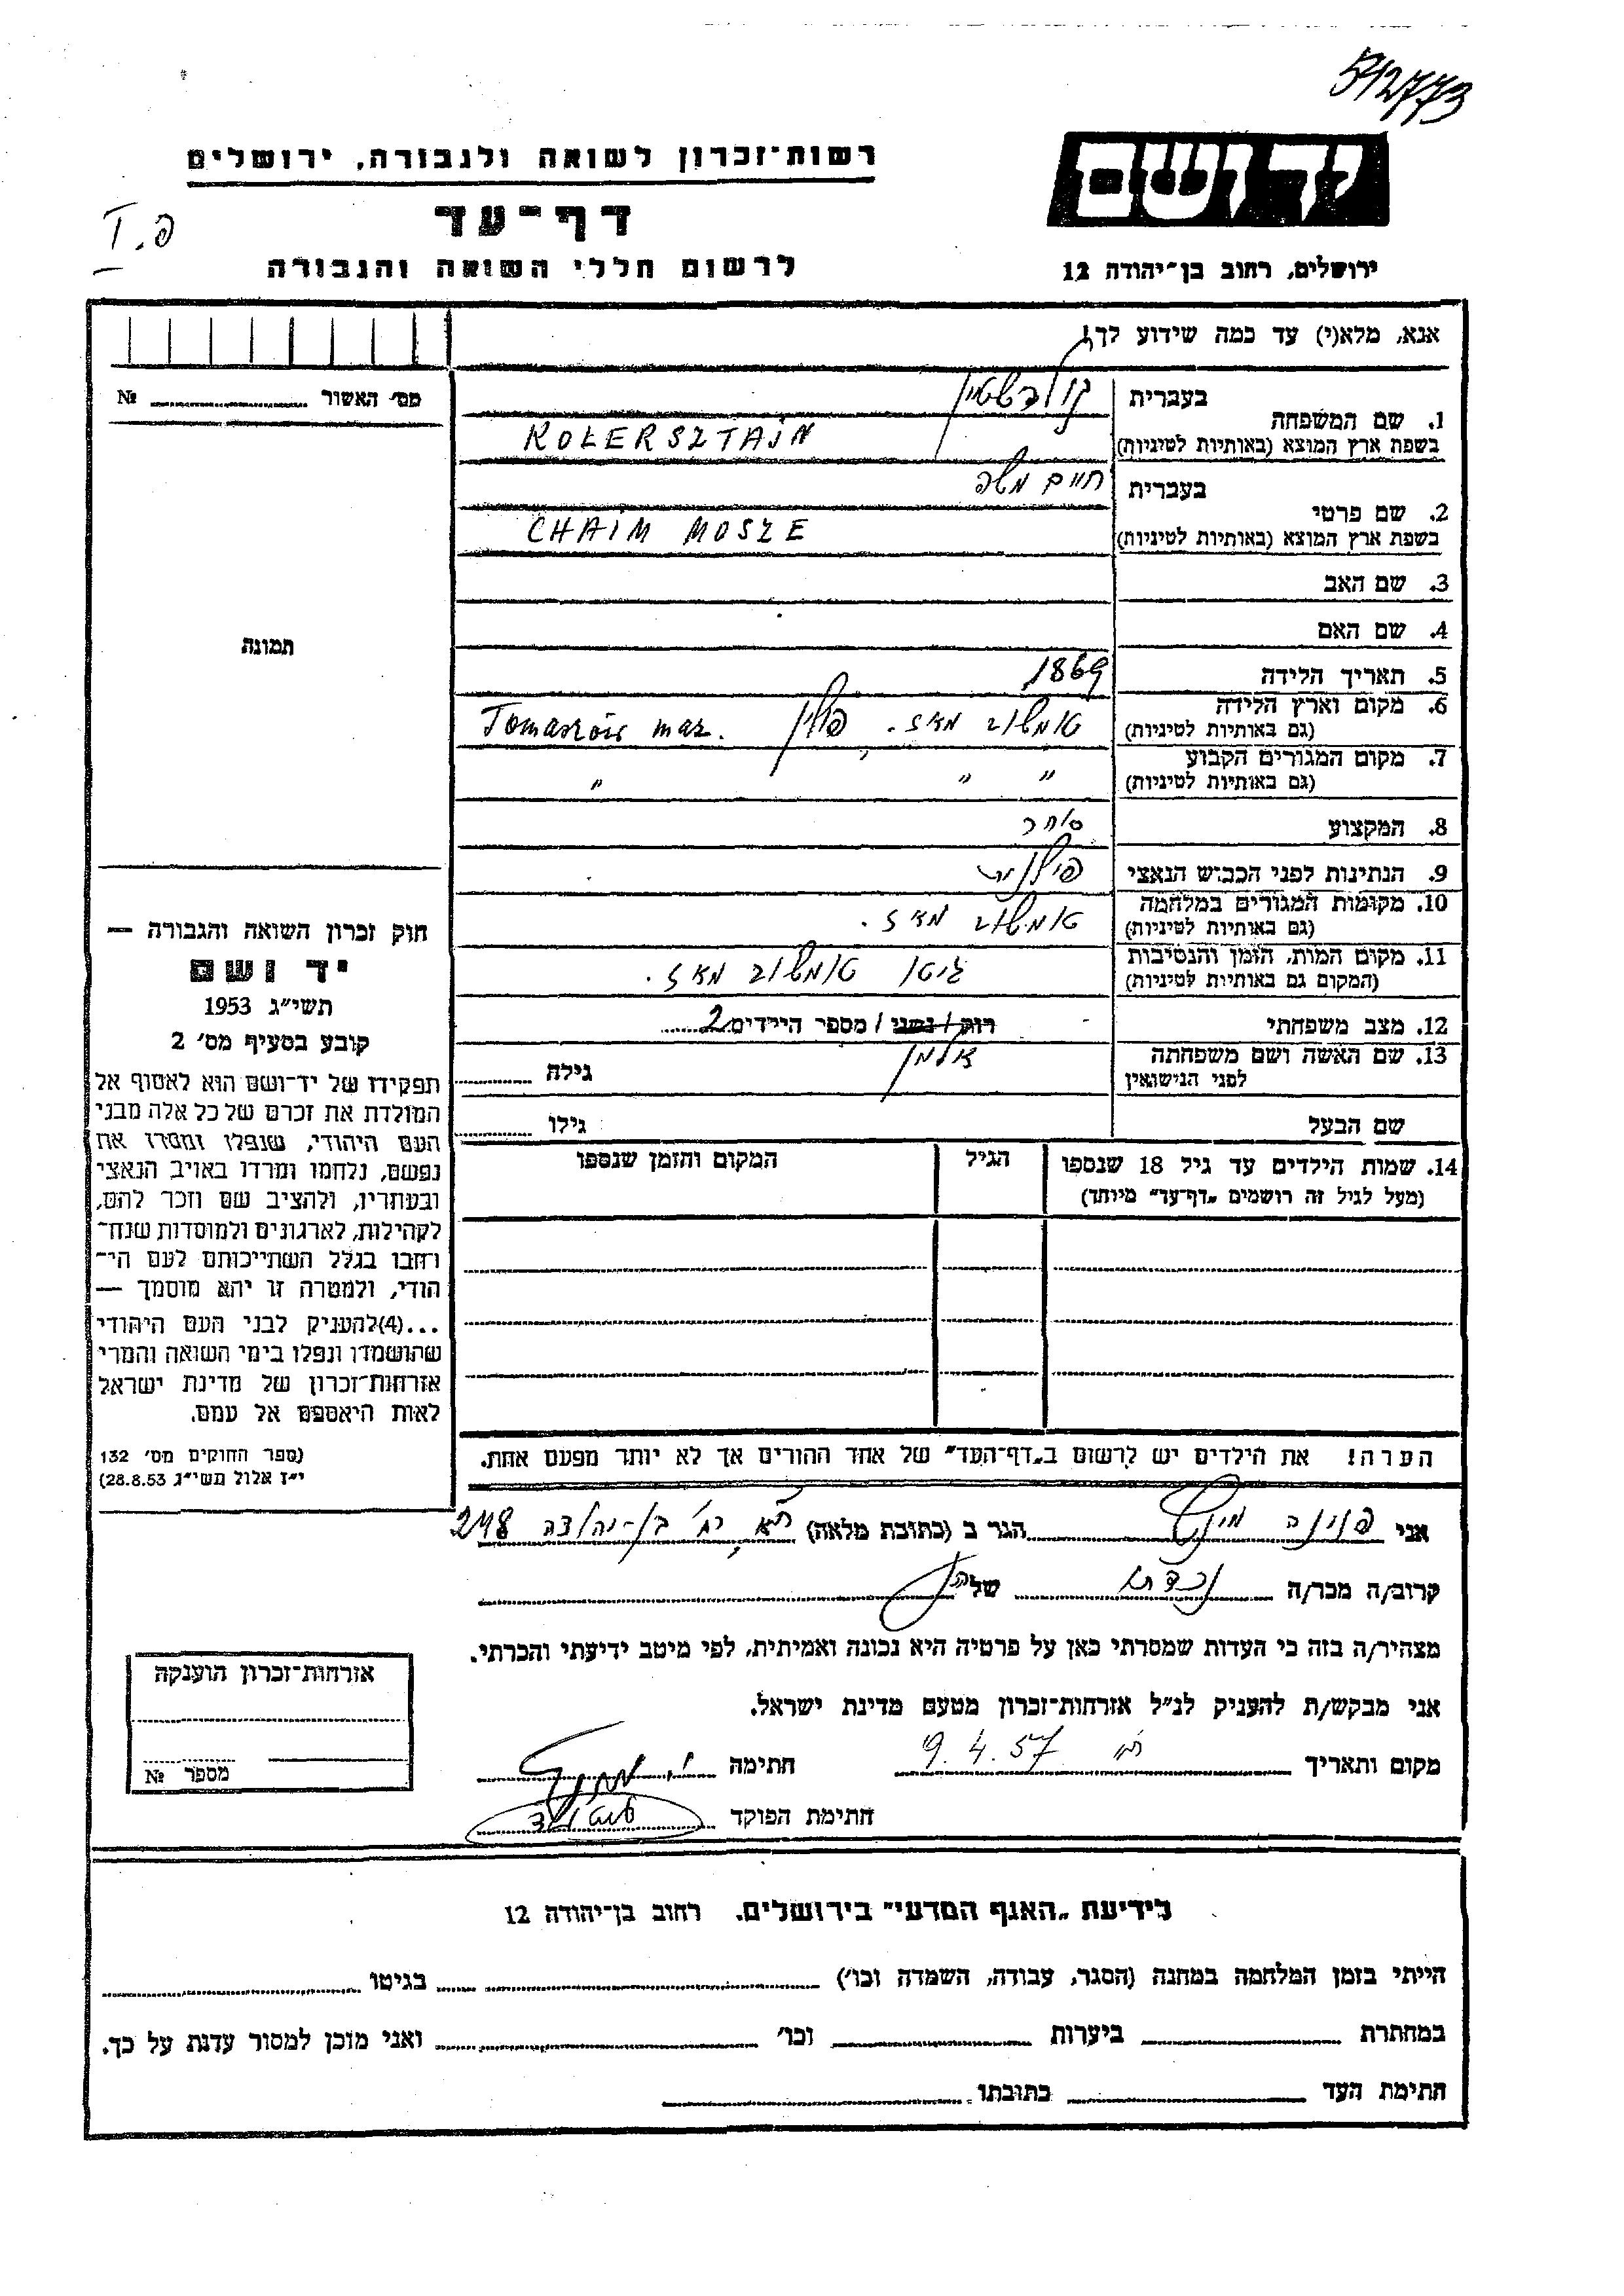 512773
יד ושם
רשות-זכרון לשואה ולגבורה, ירושלים
דף-עד
פ. I
לרשום חללי השואה והגבורה
ירושלים, רחוב בן-יהודה 12
אנא, מלא(י) עד כמה שידוע לך!
מס׳ האשור №
1. שם המשפחה
בעברית
בשפת ארץ המוצא (באותיות לטיניות) KOŁERSZTAJN
2. שם פרטי
בעברית חיים משה
בשפת ארץ המוצא (באותיות לטיניות) CHAIM MOSZE
3. שם האב
4. שם האם
תמונה
5. תאריך הלידה 1869
6. מקום וארץ הלידה טומשוב מאז. פולין Tomaszów maz.
(גם באותיות לטיניות)
7. מקום המגורים הקבוע " " "
(גם באותיות לטיניות)
8. המקצוע סוחר
9. הנתינות לפני הכבוש הנאצי פולנית
10. מקומות המגורים במלחמה טומשוב מאז.
(גם באותיות לטיניות)
11. מקום המות, הזמן והנסיבות גיטו טומשוב מאז.
(המקום גם באותיות לטיניות)
12. מצב משפחתי רווק / נשוי / מספר הילדים 2
13. שם האשה ושם משפחתה אלמן גילה
לפני הנישואין
שם הבעל גילו
14. שמות הילדים עד גיל 18 שנספו הגיל המקום והזמן שנספו
(מעל לגיל זה רושמים „דף-עד" מיוחד)
הערה! את הילדים יש לרשום ב„דף-העד" של אחד ההורים אך לא יותר מפעם אחת.
חוק זכרון השואה והגבורה —
יד ושם
תשי״ג 1953
קובע בסעיף מס׳ 2
תפקידו של יד-ושם הוא לאסוף אל
המולדת את זכרם של כל אלה מבני
העם היהודי, שנפלו ומסרו את
נפשם, נלחמו ומרדו באויב הנאצי
ובעוזריו, ולהציב שם וזכר להם,
לקהילות, לארגונים ולמוסדות שנח-
רחבו בגלל השתייכותם לעם הי-
הודי, ולמטרה זו יהא מוסמך —
...(4)להעניק לבני העם היהודי
שהושמדו ונפלו בימי השואה והמרי
אזרחות-זכרון של מדינת ישראל
לאות היאספם אל עמם.
(ספר החוקים מס׳ 132
י״ז אלול תשי״ג 28.8.53)
אני פנינה הגר ב (כתובת מלאה) ת״א רח׳ בן-יהודה 248
קרוב/ה מכר/ה נכדתו של הנ״ל
מצהיר/ה בזה כי העדות שמסרתי כאן על פרטיה היא נכונה ואמיתית, לפי מיטב ידיעתי והכרתי.
אני מבקש/ת להעניק לנ״ל אזרחות-זכרון מטעם מדינת ישראל.
מקום ותאריך ת״א 9.4.57 חתימה
חתימת הפוקד
אזרחות-זכרון הוענקה
מספר №
לידיעת „האגף המדעי" בירושלים. רחוב בן-יהודה 12
הייתי בזמן המלחמה במחנה (הסגר, עבודה, השמדה וכו׳) בגיטו
במחתרת ביערות וכו׳ ואני מוכן למסור עדות על כך.
חתימת העד כתובתו